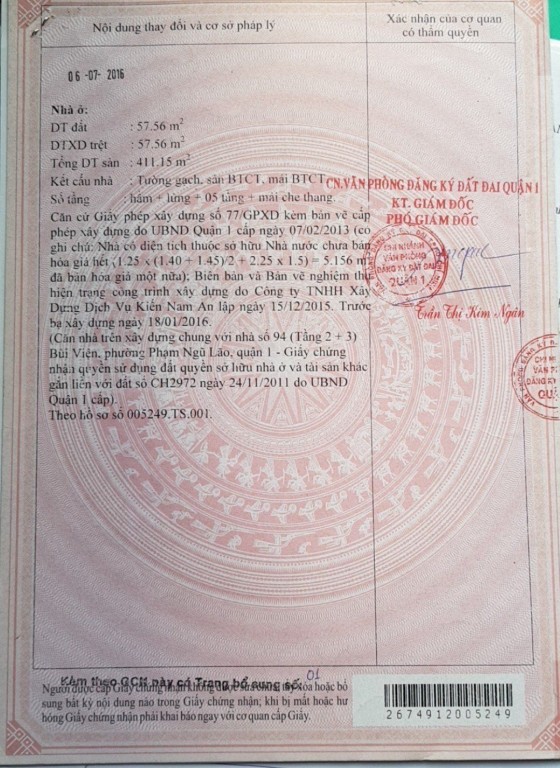 Nội dung thay đổi và cơ sở pháp lý
Xác nhận của cơ quan
có thẩm quyền
06 -07- 2016
Nhà ở:
DT đất : 57.56 m²
DTXD trệt : 57.56 m²
Tổng DT sàn : 411.15 m²
Kết cấu nhà : Tường gạch, sàn BTCT, mái BTCT
Số tầng : hầm + lửng + 05 tầng + mái che thang.
Căn cứ Giấy phép xây dựng số 77/GPXD kèm bản vẽ cấp
phép xây dựng do UBND Quận 1 cấp ngày 07/02/2013 (có
ghi chú: Nhà có diện tích thuộc sở hữu Nhà nước chưa bán
hóa giá hết (1.25 x (1.40 + 1.45)/2 + 2.25 x 1.5) = 5.156 m
đã bán hóa giá một nữa); Biên bản và Bản vẽ nghiệm thu
hiện trạng công trình xây dựng do Công ty TNHH Xây
Dựng Dịch Vụ Kiến Nam An lập ngày 15/12/2015. Trước
bạ xây dựng ngày 18/01/2016.
(Căn nhà trên xây dựng chung với nhà số 94 (Tầng 2 + 3)
Bùi Viện, phường Phạm Ngũ Lão, quận 1 - Giấy chứng
nhận quyền sử dụng đất quyền sở hữu nhà ở và tài sản khác
gắn liền với đất số CH2972 ngày 24/11/2011 do UBND
Quận 1 cấp).
Theo hồ sơ số 005249.TS.001.
CN.VĂN PHÒNG ĐĂNG KÝ ĐẤT ĐAI QUẬN 1
KT. GIÁM ĐỐC
PHÓ GIÁM ĐỐC
CHI NHÁNH
VĂN PHÒNG
ĐĂNG KÝ ĐẤT ĐAI
QUẬN 1
Trần Thị Kim Ngân
CHI N
VĂN P
ĐĂNG KÝ
QU
Kèm theo GCN này có Trang bổ sung số: 01
Người được cấp Giấy chứng nhận không được sửa chữa, tẩy xóa hoặc bổ
sung bất kỳ nội dung nào trong Giấy chứng nhận; khi bị mất hoặc hư
hỏng Giấy chứng nhận phải khai báo ngay với cơ quan cấp Giấy.
2674912005249